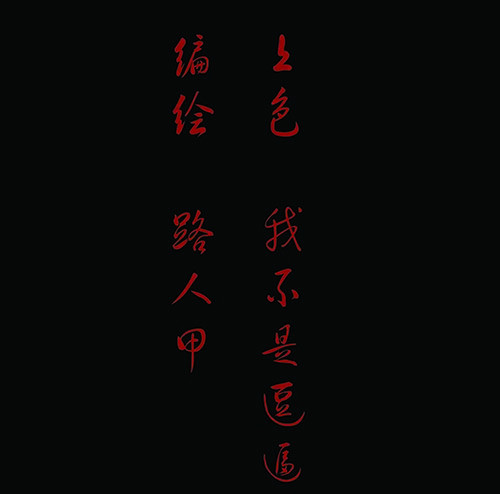 编绘 路人甲
上色 我不是逗逼